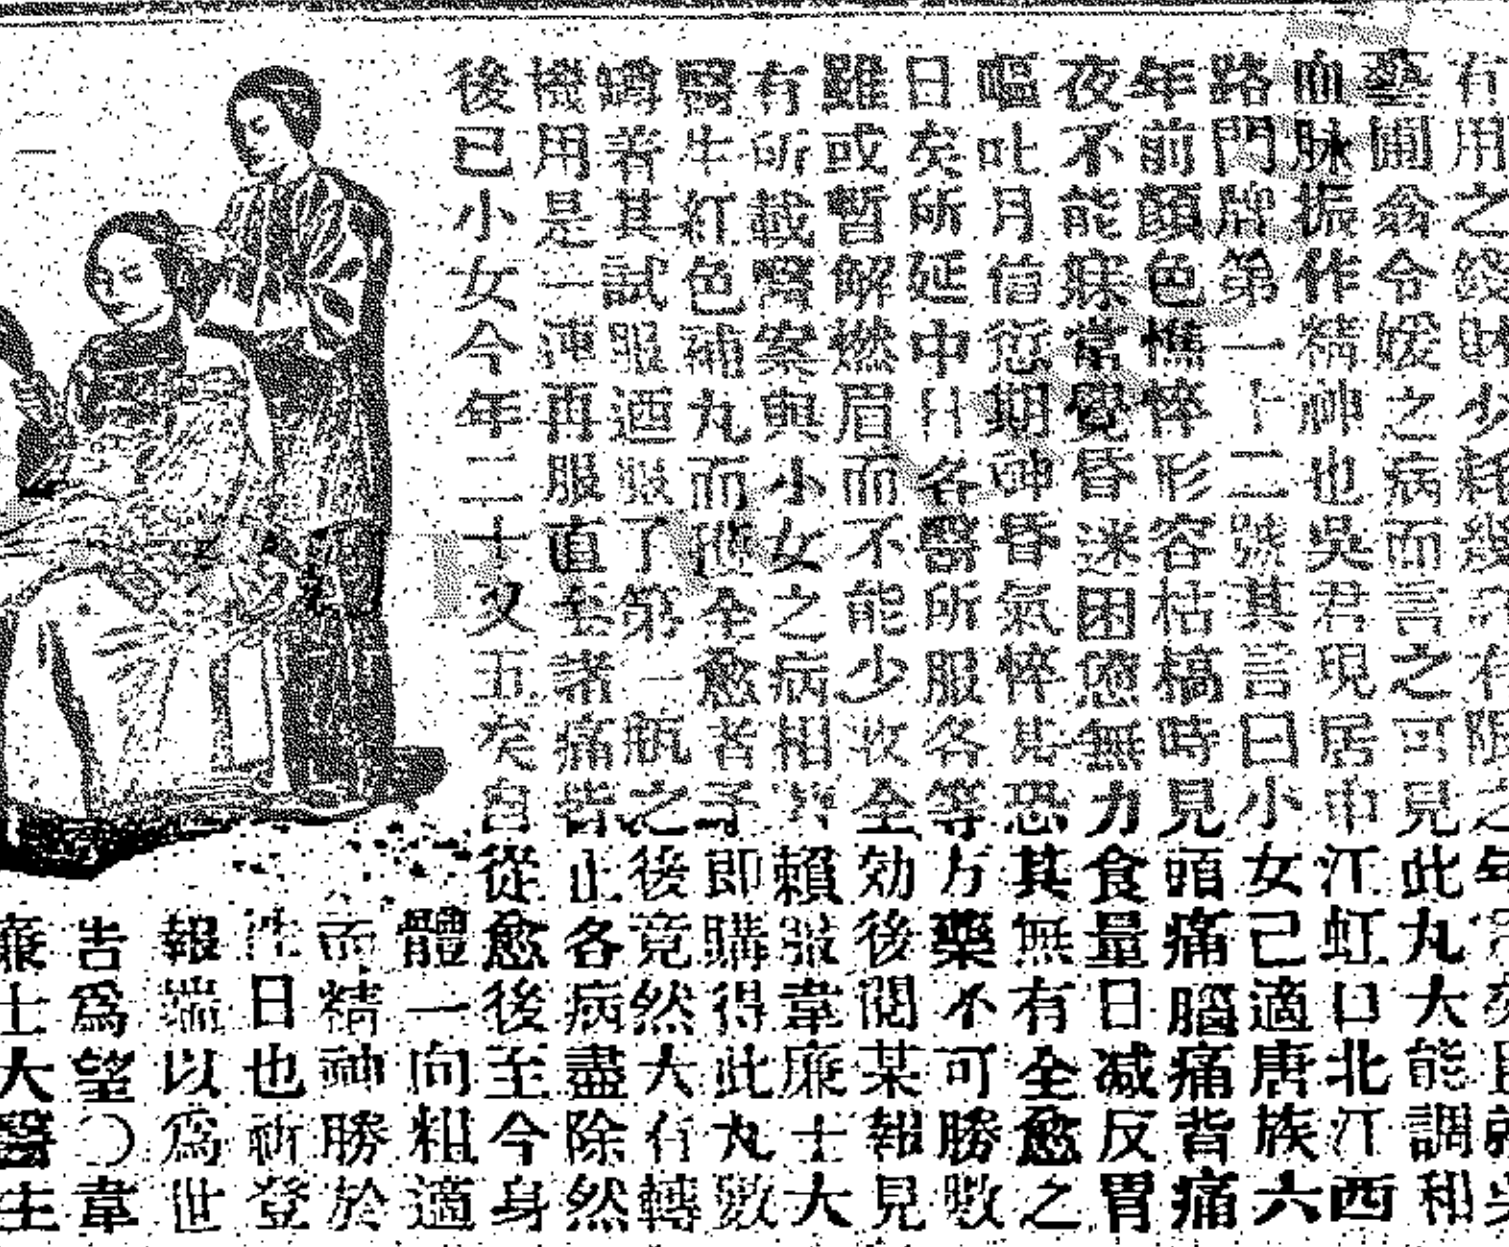 有用之錢財少耗幾許有限之年
藝圃翁令嬡之病而言之可見此丸大能調和
血脉振作精神也吳君現居中江虹口北江西
路門牌第一十二號其言曰小女己適唐族六
年前顏色憔悴形容枯槁時見頭痛腦痛背痛
夜不能寐常覺昏迷困憊無力食量日减反胃
嘔吐月信愆期神昏氣悴甚恐其無有全愈之
日矣所延中日各醫所服各等方藥不可勝數
雖或暫解燃眉而不能少收全効後閱某報見
有所載醫案與小女之病相等賴服韋廉士大
醫生紅色補丸而獲全愈者予即購得此丸數
罇著其試服迺服了第一瓶之後竟然大有轉
機用是一連再服直至諸痛皆止各病盡除然
後已小女今年二十又五矣自從愈後至今身
體一向粗適
而精神勝於
往日也祈登
報端以爲世
告爲望〇韋
廉士大醫生